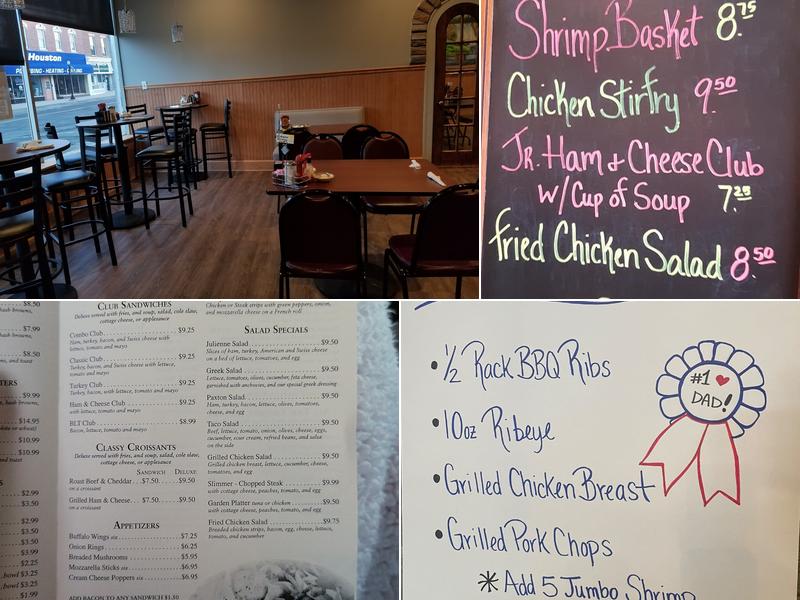 Houston
PLUMBING-HEATING-COOLING
Shrimp Basket 8.75
Chicken Stirfry 9.50
JR. Ham & Cheese Club
w/ Cup of Soup 7.25
fried Chicken Salad 8.50
$8.50
$7.99
$8.50
and toast
$9.99
$14.95
$10.99
$10.99
and toast
$2.99
$3.50
$2.99
$3.50
$3.50
$3.99
$2.25
bowl $3.25
bowl $3.25
$1.99
CLUB SANDWICHES
Deluxe served with fries, and soup, salad, cole slaw,
cottage cheese, or applesauce
Combo Club $9.25
Ham, turkey, bacon, and Swiss cheese with
lettuce, tomato and mayo
Classic Club $9.25
Turkey, bacon, and Swiss cheese with lettuce,
tomato and mayo
Turkey Club $9.25
Turkey, bacon, with lettuce, tomato and mayo
Ham & Cheese Club $9.25
with lettuce, tomato and mayo
BLT Club $8.99
Bacon, lettuce, tomato and mayo
CLASSY CROISSANTS
Deluxe served with fries, and soup, salad, cole slaw,
cottage cheese, or applesauce
SANDWICH DELUXE
Roast Beef & Cheddar $7.50 $9.50
on a croissant
Grilled Ham & Cheese $7.50 $9.50
on a croissant
APPETIZERS
Buffalo Wings six $7.25
Onion Rings $6.25
Breaded Mushrooms $5.95
Mozzarella Sticks six $6.95
Cream Cheese Poppers six $6.95
ADD BACON TO ANY SANDWICH $1.50
Chicken or Steak strips with green peppers, onion,
and mozzarella cheese on a French roll
SALAD SPECIALS
Julienne Salad $9.50
Slices of ham, turkey, American and Swiss cheese
on a bed of lettuce, tomatoes, and egg
Greek Salad $9.50
Lettuce, tomatoes, olives, cucumber, feta cheese,
garnished with anchovies, and our special greek dressing
Paxton Salad $9.50
Ham, turkey, bacon, lettuce, olives, tomatoes,
cheese, and egg
Taco Salad $9.50
Beef, lettuce, tomato, onion, olives, cheese, eggs,
cucumber, sour cream, refried beans, and salsa
on the side
Grilled Chicken Salad $9.50
Grilled chicken breast, lettuce, cucumber, cheese,
tomatoes, and egg
Slimmer - Chopped Steak $9.99
with cottage cheese, peaches, tomato, and egg
Garden Platter tuna or chicken $9.50
with cottage cheese, peaches, tomato, and egg
Fried Chicken Salad $9.75
Breaded chicken strips, bacon, egg, cheese, lettuce,
tomato, and cucumber
• 1/2 Rack BBQ Ribs
• 10oz Ribeye
• Grilled Chicken Breast
• Grilled Pork Chops
* Add 5 Jumbo Shrimp
#1 ♥
DAD!